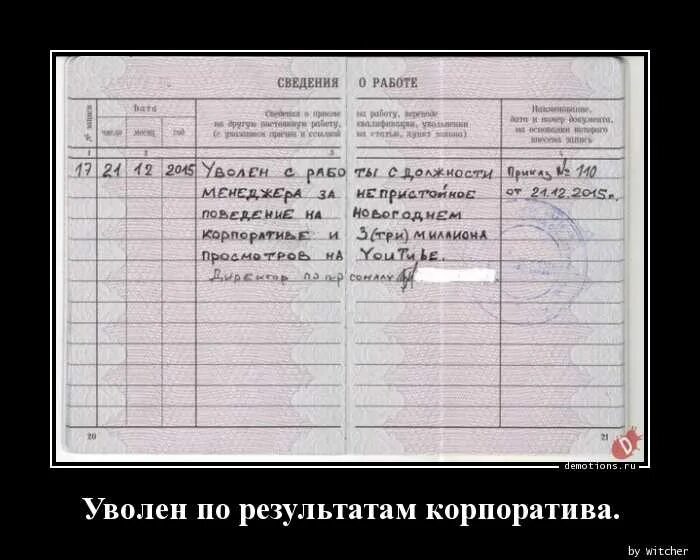 СВЕДЕНИЯ О РАБОТЕ
№ записи
Дата
число месяц год
Сведения о приеме на работу, переводе
на другую постоянную работу, квалификации, увольнении
(с указанием причин и ссылкой на статью, пункт закона)
Наименование,
дата и номер документа,
на основании которого
внесена запись
1 2 3 4
17 21 12 2015 Уволен с работы с должности Приказ № 110
менеджера за непристойное от 21.12.2015г.
поведение на новогоднем
корпоративе и 3(три) миллиона
просмотров на YouTube.
Директор по персоналу
20 21
demotions.ru
Уволен по результатам корпоратива.
by Witcher